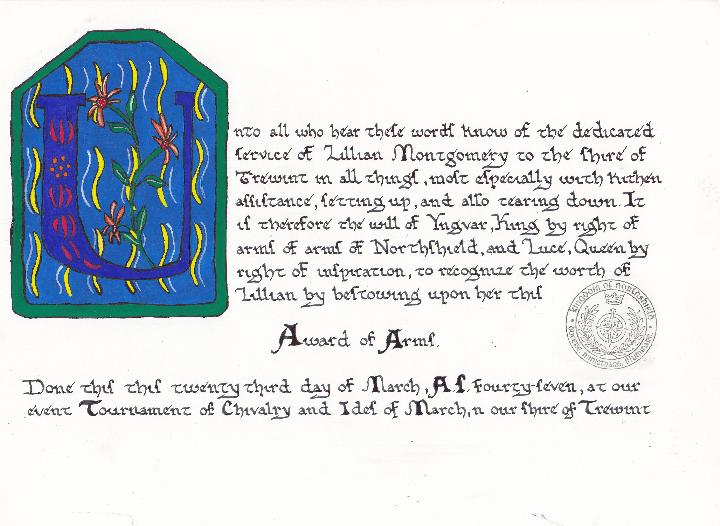 Unto all who hear these words know of the dedicated
service of Lillian Montgomery to the shire of
Trewint in all things, most especially with kitchen
assistance, setting up, and also tearing down. It
is therefore the will of Yngvar, King by right of
arms of arms of Northshield, and Luce, Queen by
right of inspiration, to recognize the worth of
Lillian by bestowing upon her this
Award of Arms.
Done this this twenty third day of March, A.S. fourty-seven, at our
event Tournament of Chivalry and Ides of March,n our shire of Trewint
Kingdom of Northshield